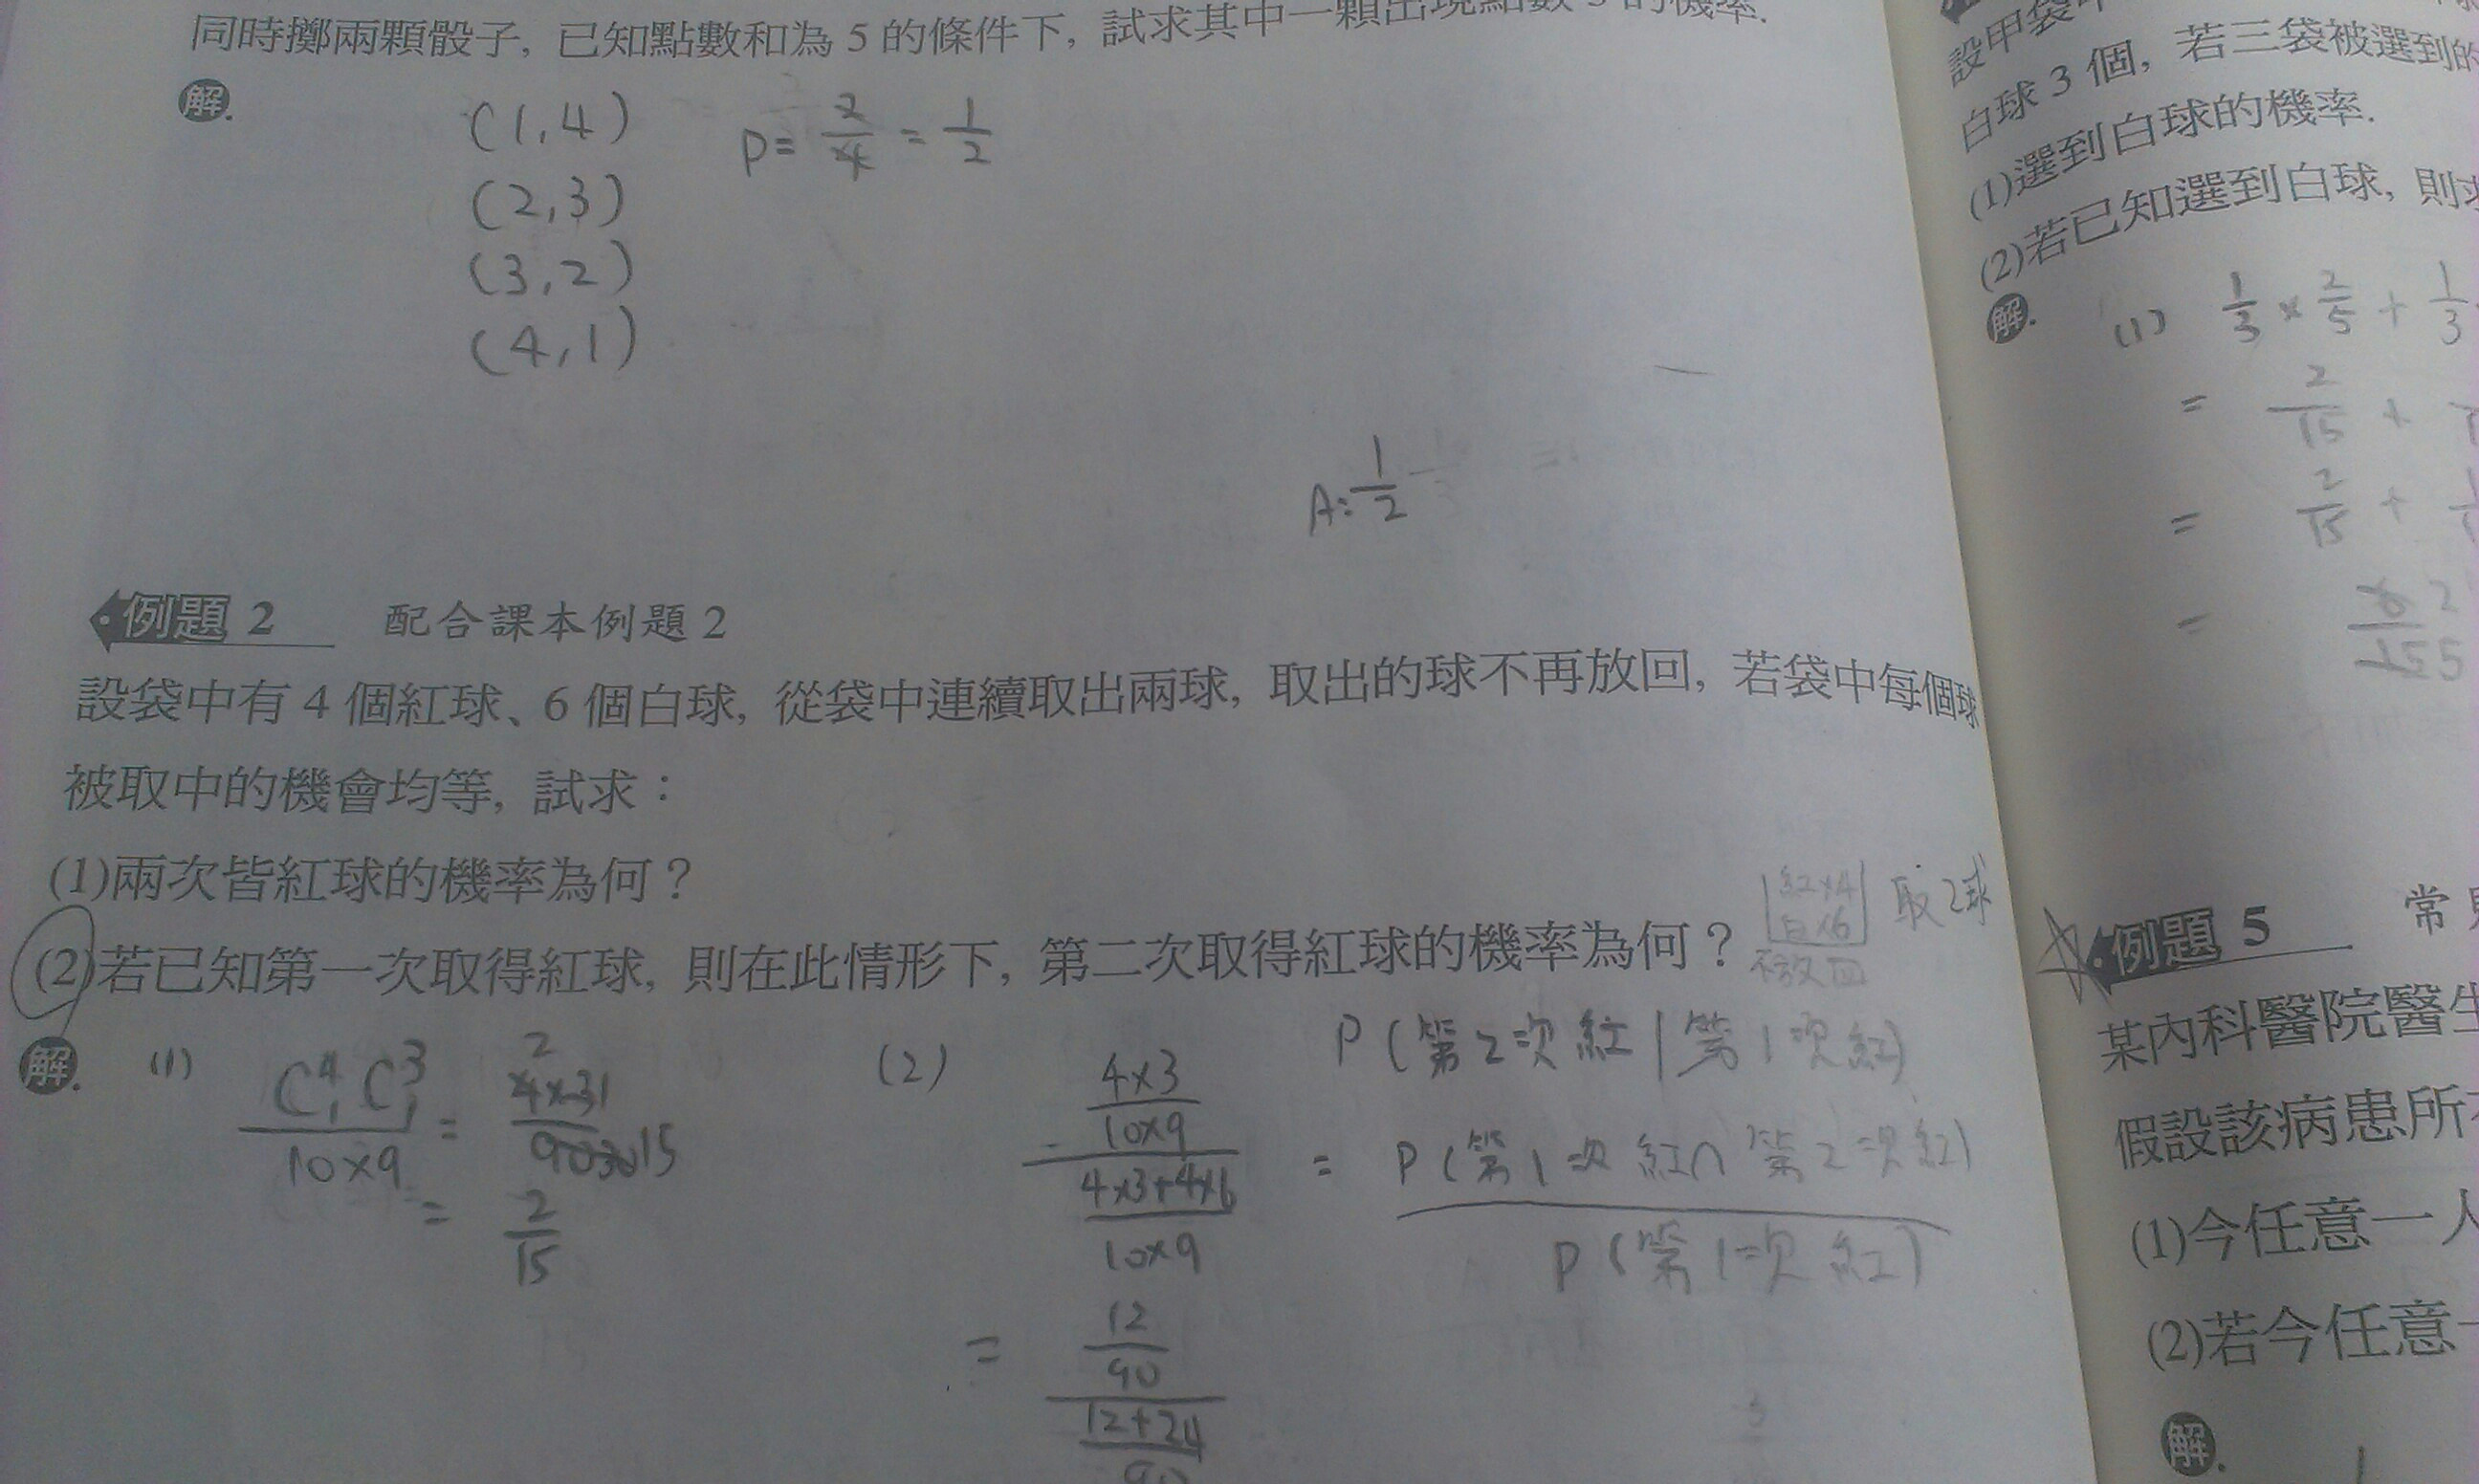 同時擲兩顆骰子, 已知點數和為 5 的條件下, 試求其中一顆出現點數 3 的機率.
解.
(1,4)
P= 2/4 = 1/2
(2,3)
(3,2)
(4,1)
A: 1/2
例題 2 配合課本例題 2
設袋中有 4 個紅球、6 個白球, 從袋中連續取出兩球, 取出的球不再放回, 若袋中每個球
被取中的機會均等, 試求：
(1)兩次皆紅球的機率為何？
(2)若已知第一次取得紅球, 則在此情形下, 第二次取得紅球的機率為何？
紅×4
白×6
取2球
不放回
解.
(1)
C⁴₁ C³₁
10×9
=
2
4×31
15
= 2/15
(2)
4×3
10×9
4×3+4×6
10×9
P(第2次紅|第1次紅)
= P(第1次紅∩第2次紅)
P(第1次紅)
=
12
90
12+24
90
設甲袋
白球 3 個, 若三袋被選到的
(1)選到白球的機率.
(2)若已知選到白球, 則
解.
(1) 1/3 × 2/5 + 1/3
= 2/15 +
= 2/15 +
=
例題 5 常
某內科醫院醫生
假設該病患所
(1)今任意一人
(2)若今任意一
解.